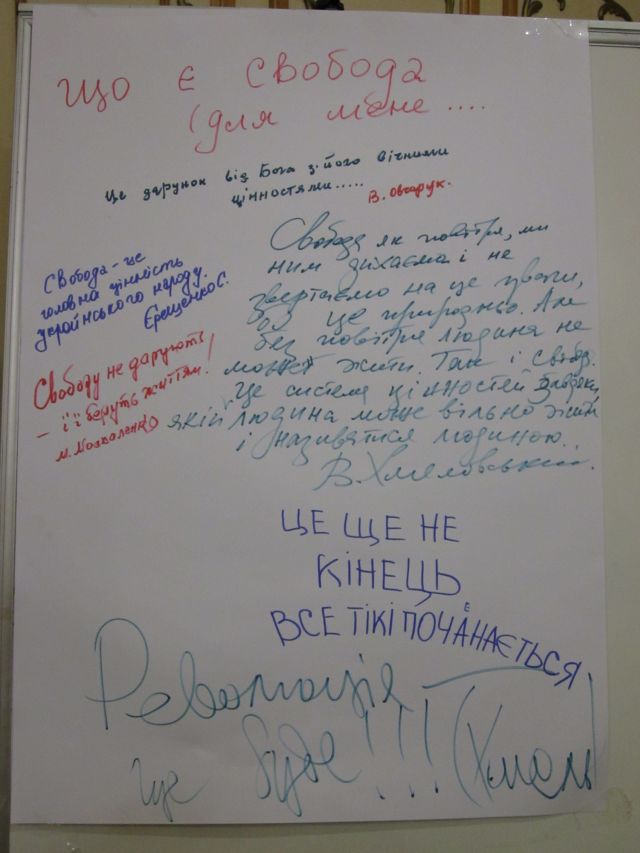 ЩО Є СВОБОДА
(для мене ....
Це дарунок від Бога з його вічними
цінностями.....
В. Овчарук.
Свобода - це
головна цінність
українського народу.
Єрещенко С.
Свободу не дарують!
– її беруть життям!
М. Москаленко
Свобода як повітря, ми
ним дихаємо і не
звертаємо на це уваги,
бо це природньо. Але
без повітря людина не
может жити. Так і свобода.
Це система цінностей завдяки
якій людина може вільно жити
і називатися людиною.
В. Хмельовський.
ЦЕ ЩЕ НЕ
КІНЕЦЬ,
ВСЕ ТІКІ ПОЧАНАЄТЬСЯ
Революція
ще буде!!! (Хмель)